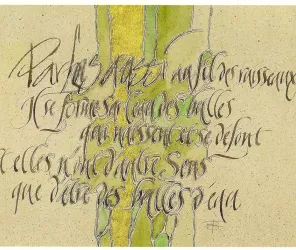 Parfois aussi au fil des ruisseaux
Il se forme sur l'eau des bulles
qui naissent et se défont
et elles n'ont d'autre sens
que d'être des bulles d'eau